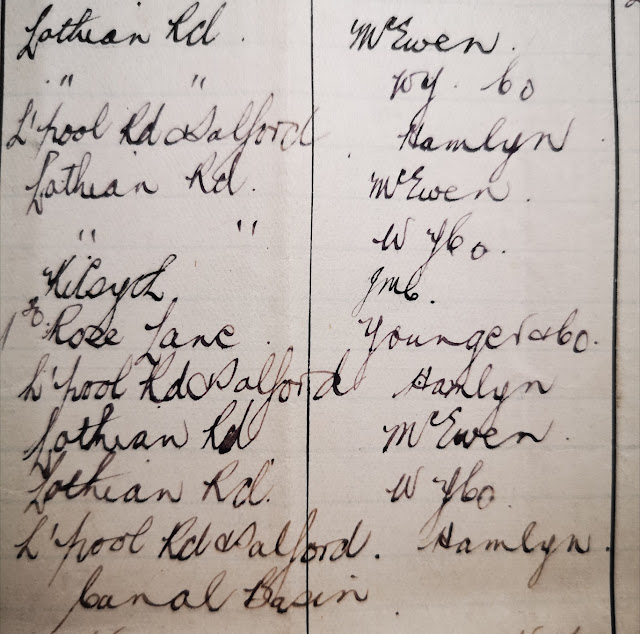 Lothian Rd. McEwen.
" " WY. Co
L'pool Rd & Salford Hamlyn
Lothian Rd. McEwen.
" " W Y Co.
Kilsyth JMC.
Rose Lane Younger & Co.
L'pool Rd & Salford Hamlyn
Lothian Rd McEwen.
Lothian Rd. W Y Co.
L'pool Rd & Salford. Hamlyn.
Canal Basin